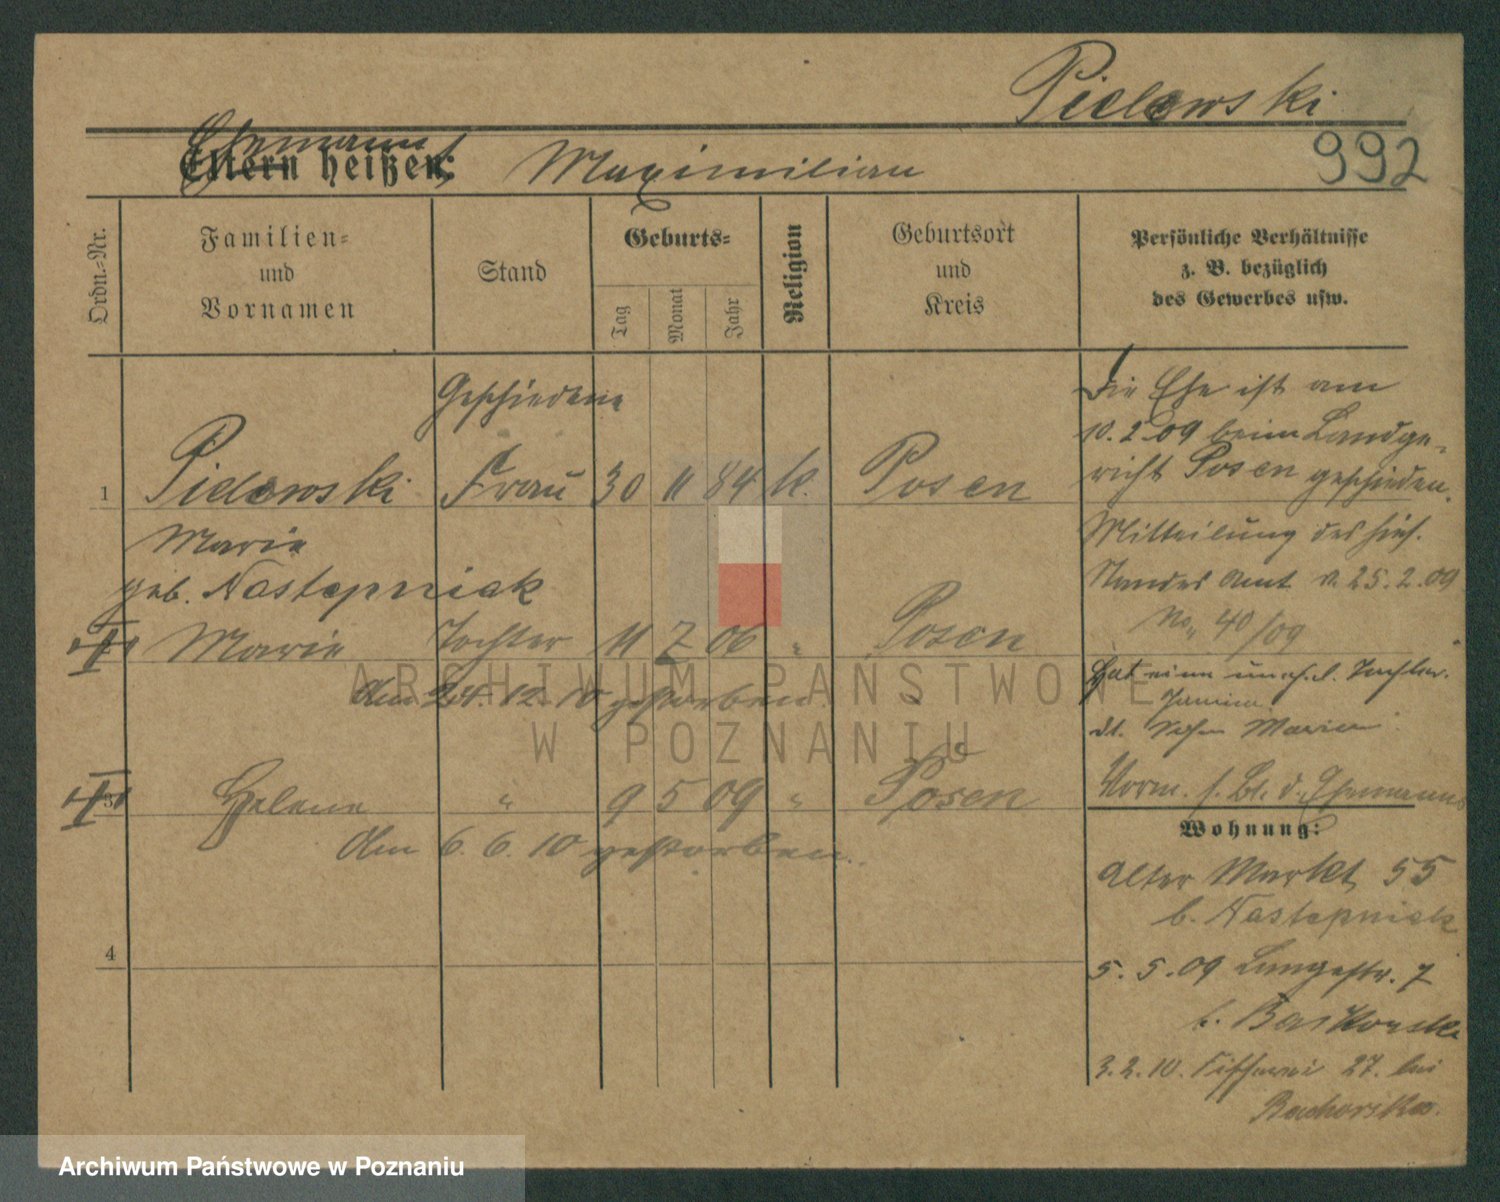 Pielowski
992
Ehemann
Eltern heißen: Maximilian
Ordn.-Nr.
Familien-
und
Vornamen
Stand
Geburts-
Tag
Monat
Jahr
Religion
Geburtsort
und
Kreis
Persönliche Verhältnisse
z. B. bezüglich
des Gewerbes usw.
Geschiedene
1 Pielowski Frau 30 11 84 k. Posen
Marie
geb. Nastepniak
Marie Tochter 11 7 06 " Posen
Am 24.12.10 gestorben.
3 Helene " 9 5 09 " Posen
Am 6.6.10 gestorben.
4
Die Ehe ist am
10.2.09 beim Landge-
richt Posen geschieden.
Mitteilung des hies.
Standes Amt v. 25.2.09
No. 40/09
Hat eine unehel. Tochter
Marie
Vorm. s. Bl. d. Ehemanns
Wohnung:
Alter Markt 55
b. Nastepniak
5.5.09 Langestr. 7
b.
3.2.10. Fischerei 27. bei
ARCHIWUM PAŃSTWOWE
W POZNANIU
Archiwum Państwowe w Poznaniu